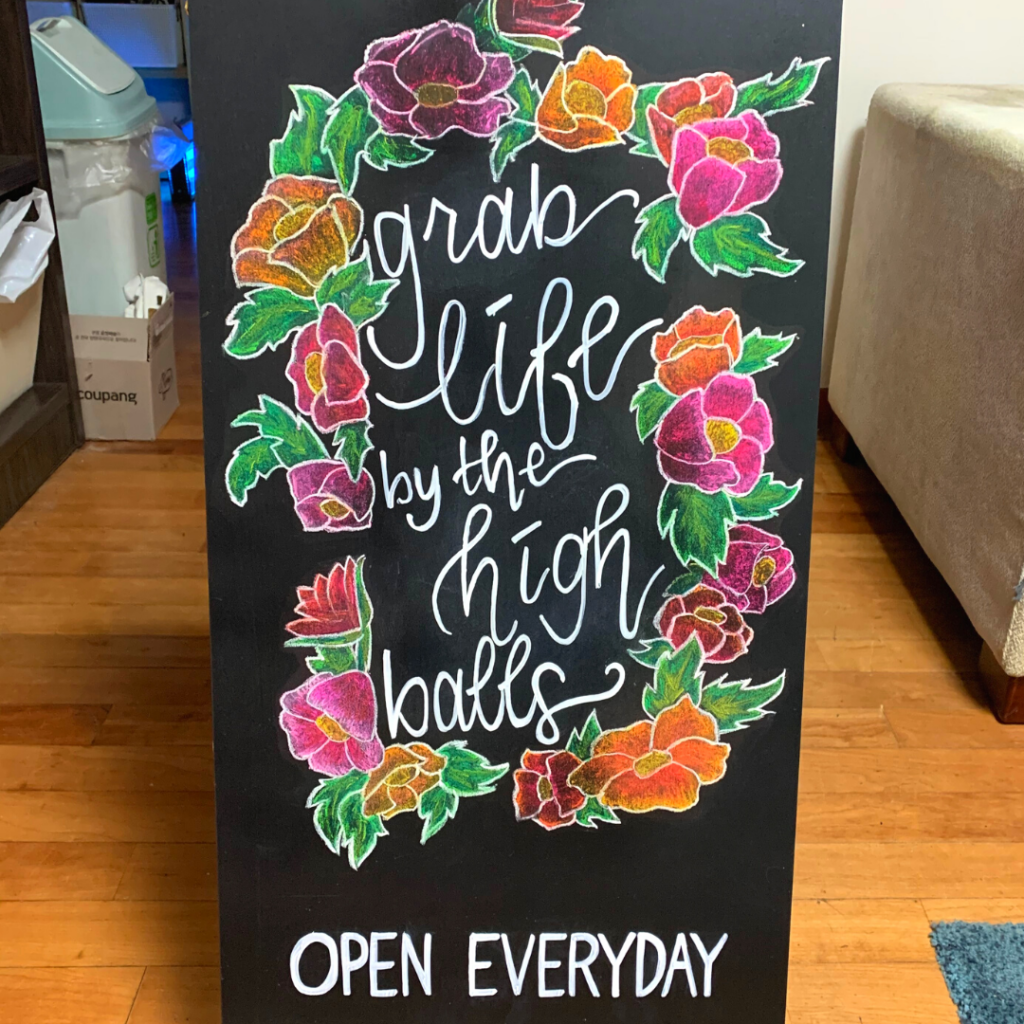 grab
life
by the
high
balls
OPEN EVERYDAY
coupang